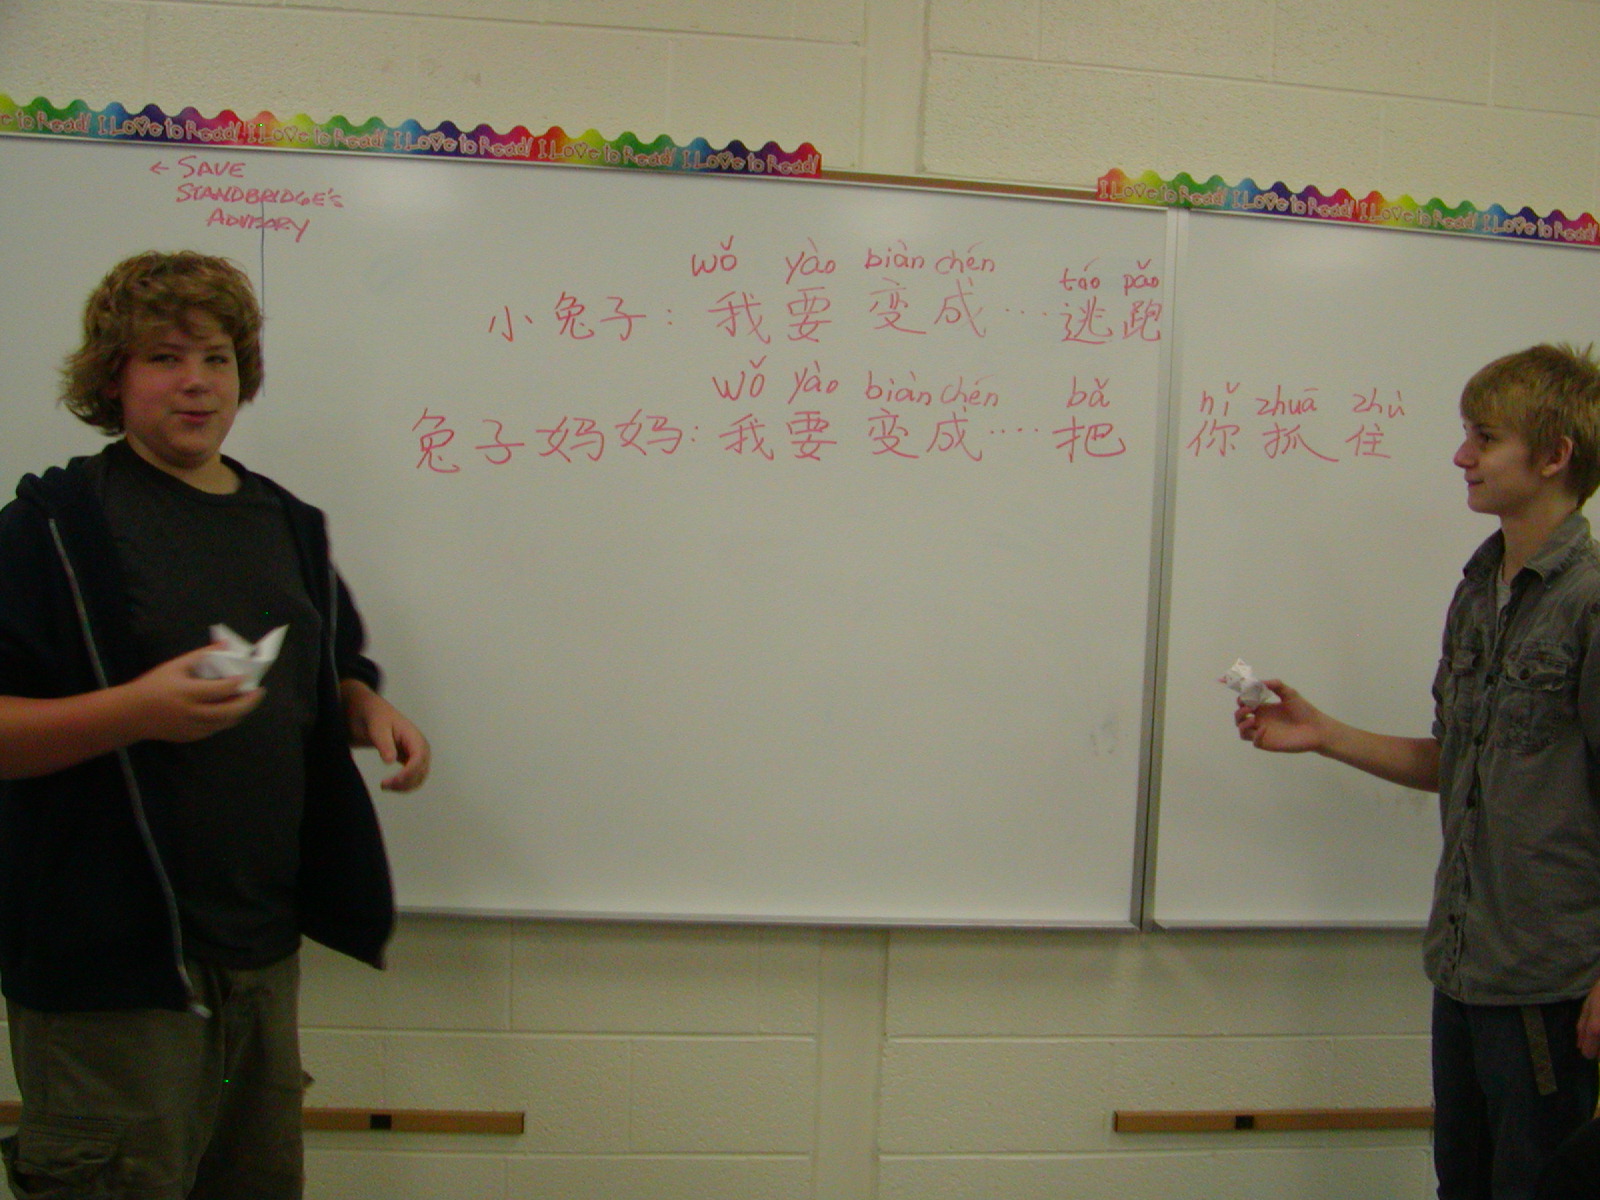 e to Read! I Love to Read! I Love to Read! I Love to Read! I Love to Read! I Love to Read!
I Love to Read! I Love to Read! I Love to Read! I Love to Read!
← SAVE
STANDBRIDGE'S
ADVISORY
wǒ yào biàn chén táo pǎo
小兔子: 我要变成···逃跑
wǒ yào biàn chén bǎ nǐ zhuā zhù
兔子妈妈: 我要变成····把你抓住